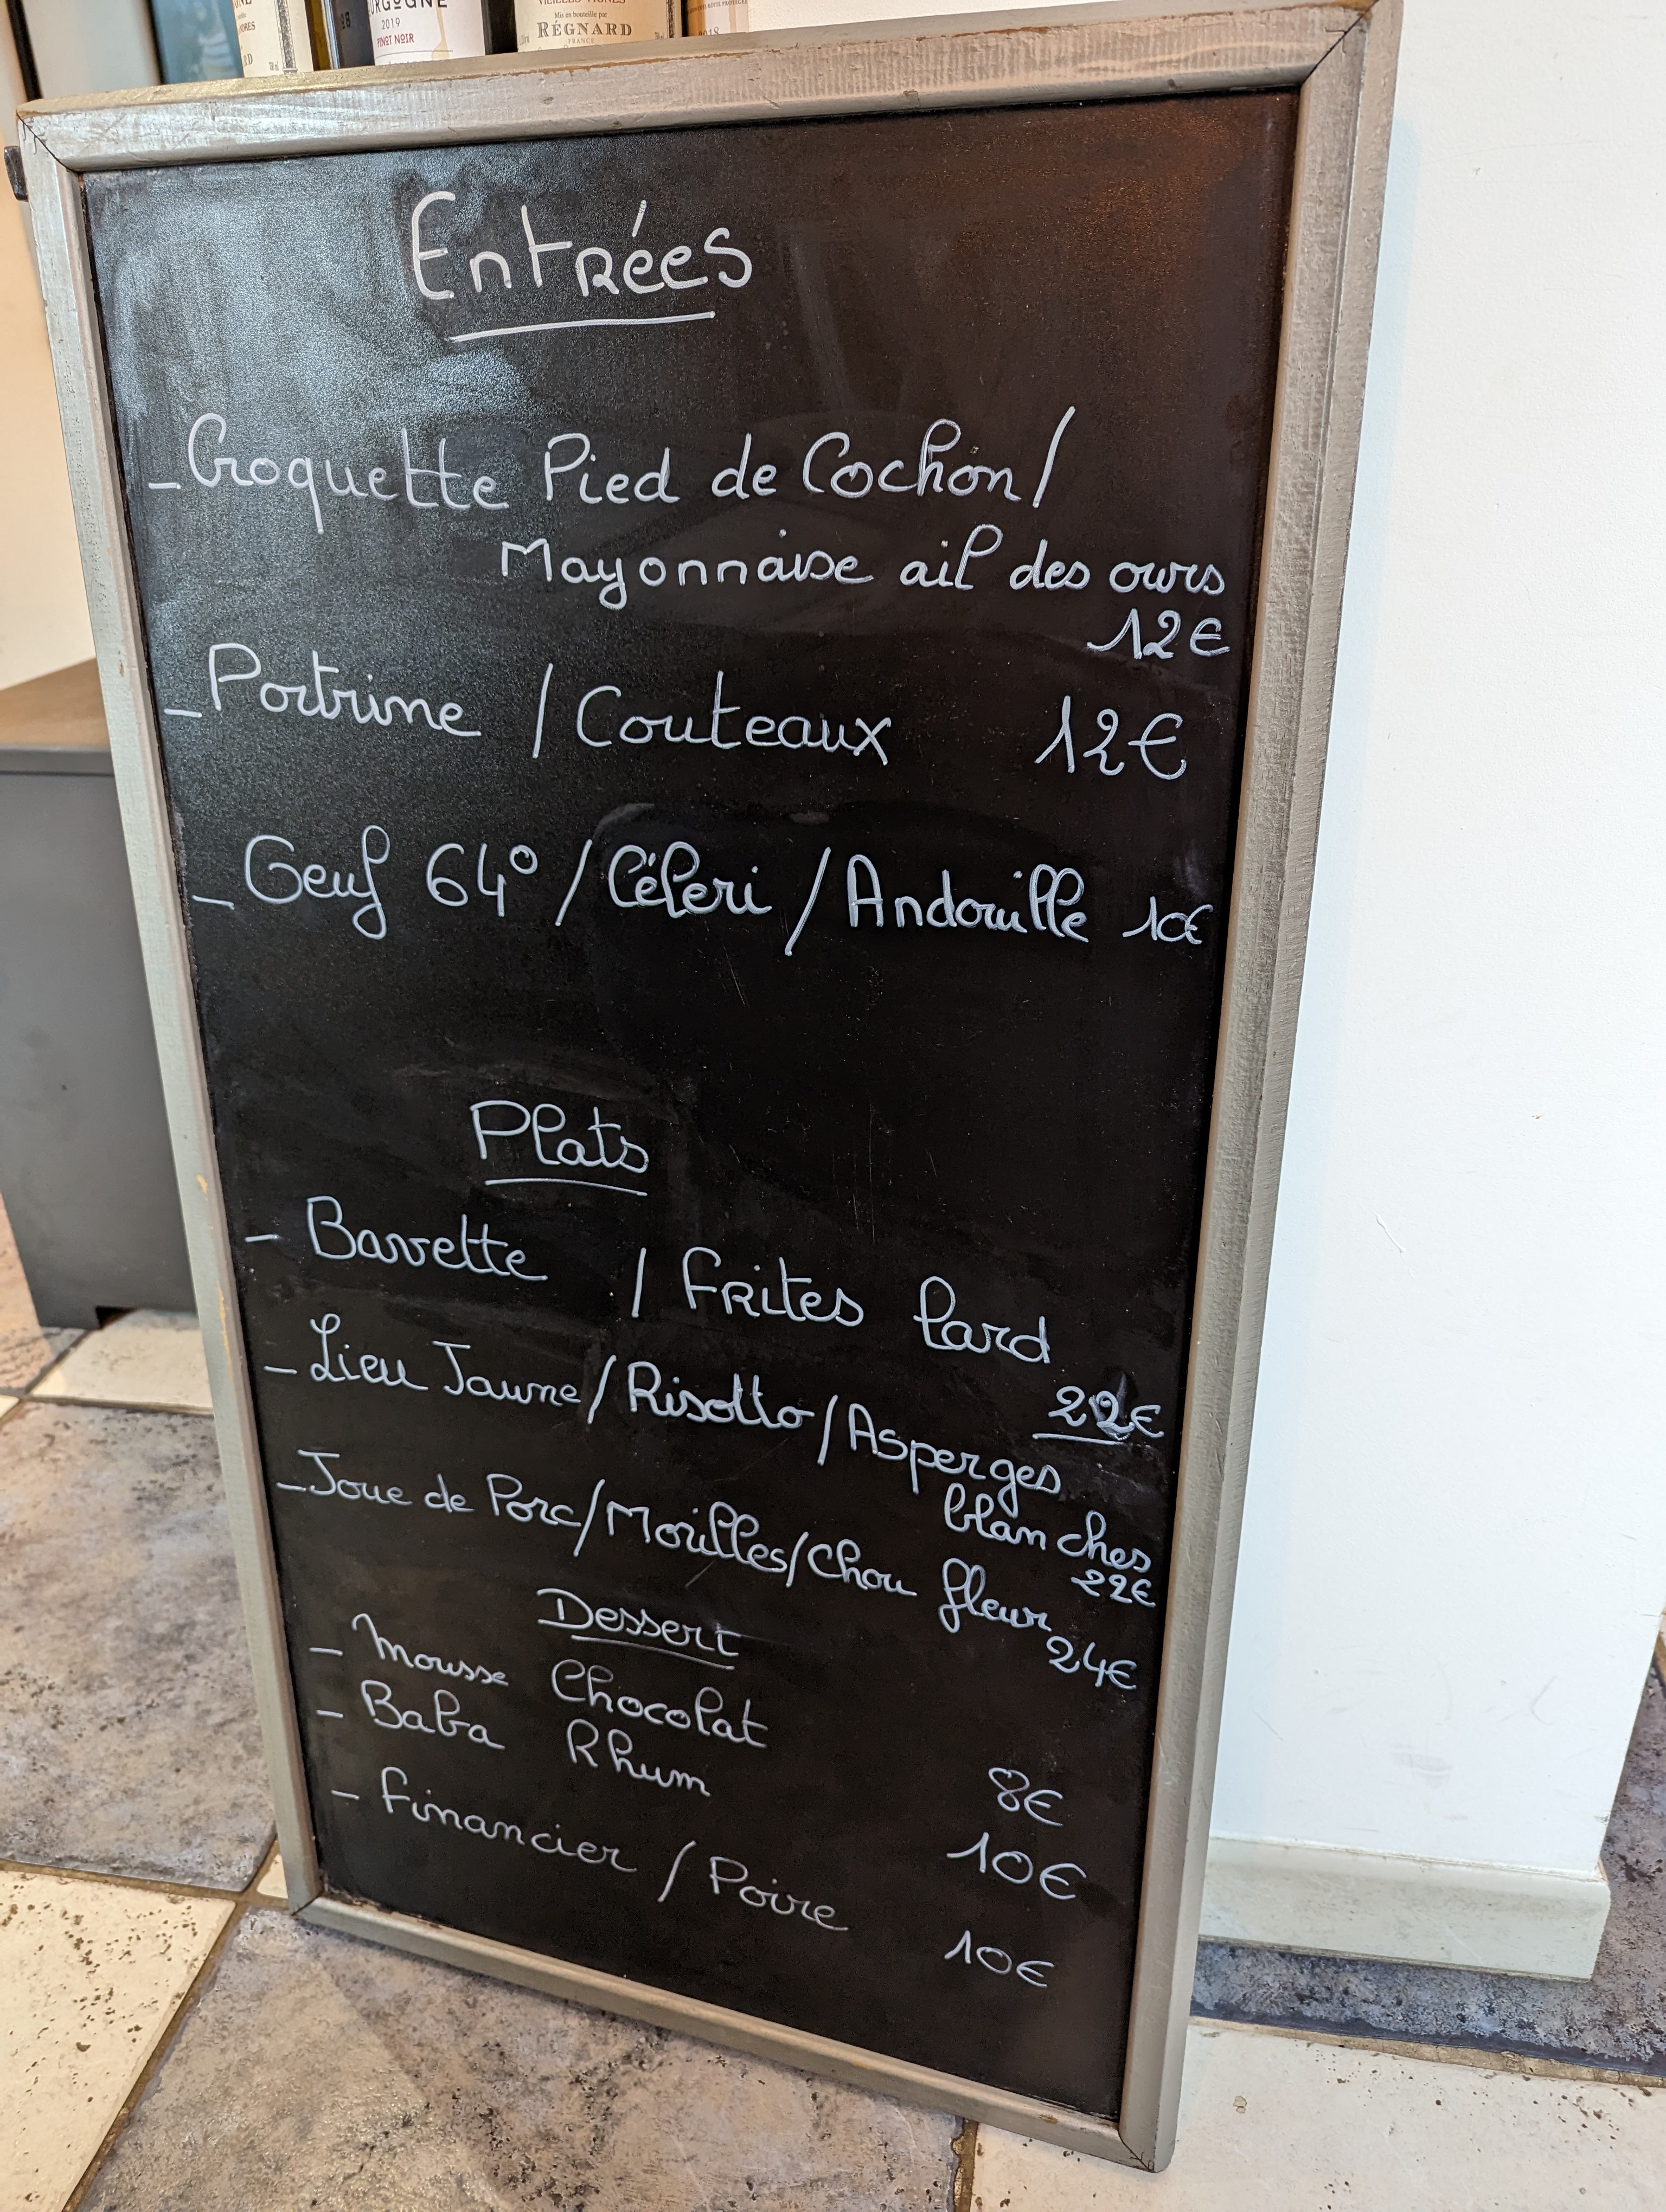 URGOGNE
2019
PINOT NOIR
VIEILLES VIGNES
Mis en bouteille par
RÉGNARD
FRANCE
Entrées
_ Croquette Pied de Cochon/
Mayonnaise ail des ours
12€
_ Poitrine / Couteaux 12€
_ Oeuf 64° / Céleri / Andouille 10€
Plats
- Bavette / Frites lard
22€
_ Lieu Jaune / Risotto / Asperges
blanches
22€
_ Joue de Porc / Morilles / Chou fleur
24€
Dessert
_ Mousse Chocolat 8€
_ Baba Rhum 10€
_ Financier / Poire 10€